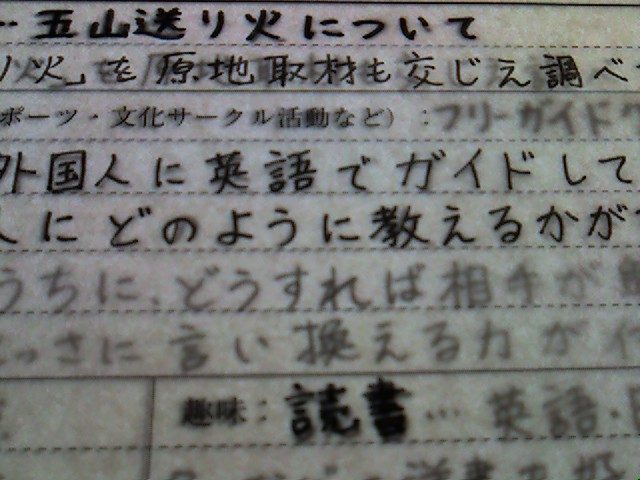 …五山送り火について
り火」を原地取材も交じえ調べ
ポーツ・文化サークル活動など）：フリーガイドク
外国人に英語でガイドして
人にどのように教えるかが
うちに、どうすれば相手が
っさに言い換える力が
趣味：読書… 英語・
洋書も